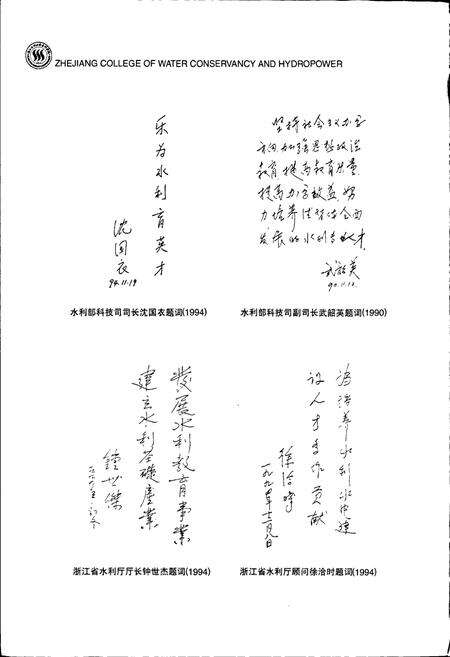 ZHEJIANG COLLEGE OF WATER CONSERVANCY AND HYDROPOWER
乐为水利育英才
沈国衣
94.11.19
水利部科技司司长沈国衣题词(1994)
坚持社会主义办学
方向加强思想政治
教育提高教育质量
提高办学效益努
力培养德智体全面
发展的水利专业人才
武韶英
90.11.12.
水利部科技司副司长武韶英题词(1990)
發展水利教育事業
建立水利基礎產業
鍾世傑
浙江省水利厅厅长钟世杰题词(1994)
为培养水利水电建
设人才多作贡献
徐洽时
一九九四年十二月八日
浙江省水利厅顾问徐洽时题词(1994)